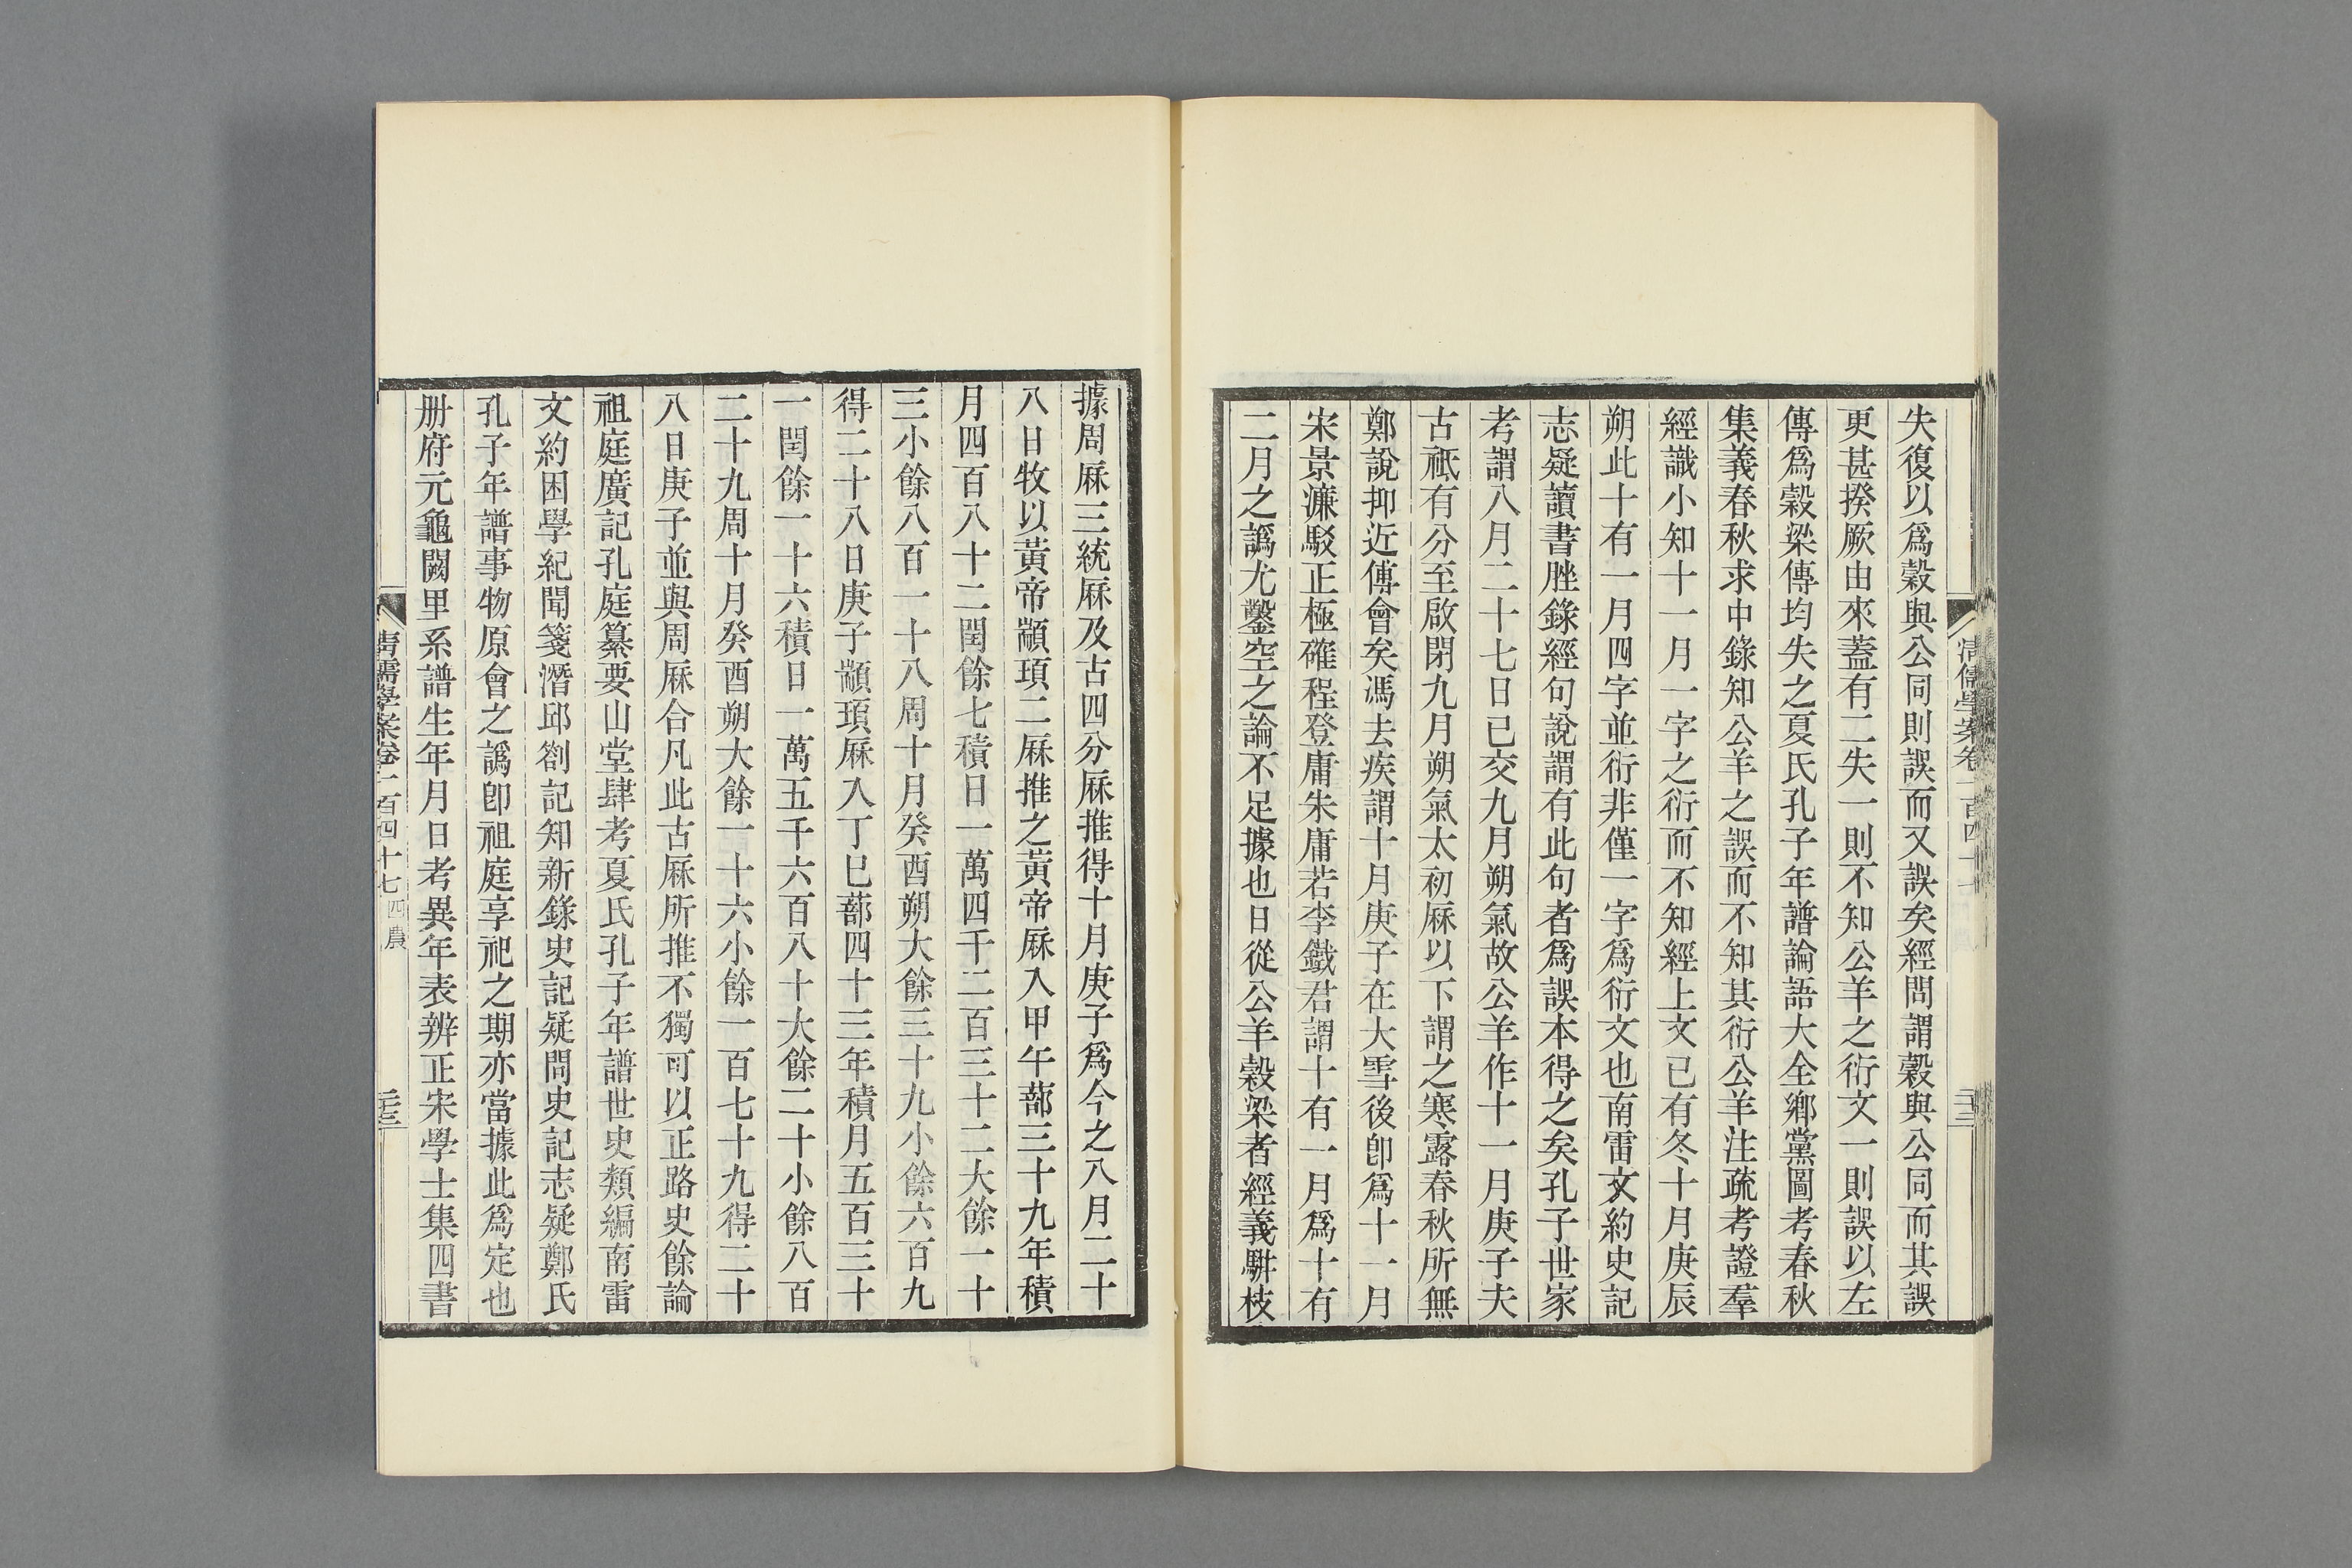 失復以爲穀與公同則誤而又誤矣經問謂穀與公同而其誤
更甚揆厥由來蓋有二失一則不知公羊之衍文一則誤以左
傳爲穀梁傳均失之夏氏孔子年譜論語大全鄉黨圖考春秋
集義春秋求中錄知公羊之誤而不知其衍公羊注疏考證羣
經識小知十一月一字之衍而不知經上文已有冬十月庚辰
朔此十有一月四字並衍非僅一字爲衍文也南雷文約史記
志疑讀書脞錄經句說謂有此句者爲誤本得之矣孔子世家
考謂八月二十七日已交九月朔氣故公羊作十一月庚子夫
古祗有分至啟閉九月朔氣太初厤以下謂之寒露春秋所無
鄭說抑近傅會矣馮去疾謂十月庚子在大雪後卽爲十一月
宋景濂駁正極確程登庸朱庸若李鐵君謂十有一月爲十有
二月之譌尤鑿空之論不足據也日從公羊穀梁者經義騈枝
清儒學案卷一百四十七
據周厤三統厤及古四分厤推得十月庚子爲今之八月二十
八日牧以黃帝顓頊二厤推之黃帝厤入甲午蔀三十九年積
月四百八十二閏餘七積日一萬四千二百三十二大餘一十
三小餘八百一十八周十月癸酉朔大餘三十九小餘六百九
得二十八日庚子顓頊厤入丁巳蔀四十三年積月五百三十
一閏餘一十六積日一萬五千六百八十大餘二十小餘八百
二十九周十月癸酉朔大餘一十六小餘一百七十九得二十
八日庚子並與周厤合凡此古厤所推不獨可以正路史餘論
祖庭廣記孔庭纂要山堂肆考夏氏孔子年譜世史類編南雷
文約困學紀聞箋潛邱劄記知新錄史記疑問史記志疑鄭氏
孔子年譜事物原會之譌卽祖庭享祀之期亦當據此爲定也
册府元龜闕里系譜生年月日考異年表辨正宋學士集四書
清儒學案卷一百四十七 四農